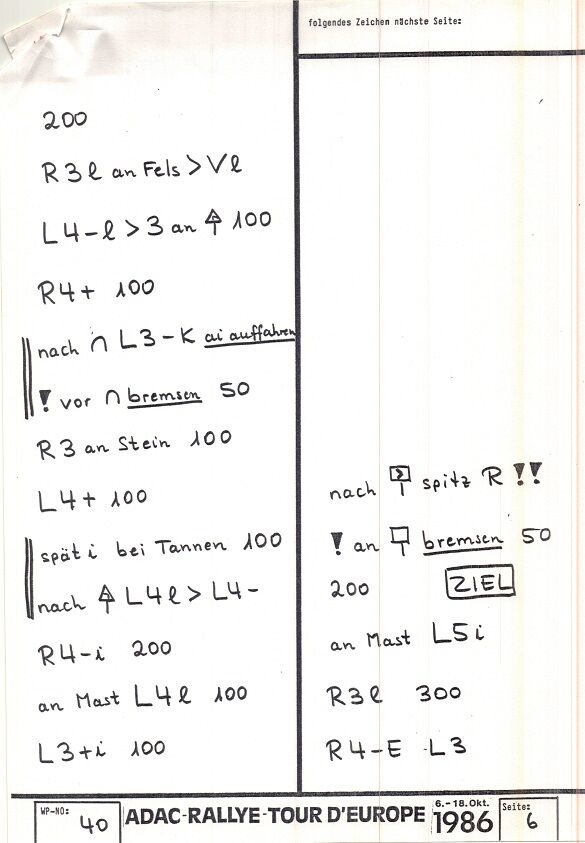 folgendes Zeichen nächste Seite:
200
R3l an Fels > Vl
L4-l > 3 an 100
R4+ 100
nach ∩ L3-K ai auffahren
! vor ∩ bremsen 50
R3 an Stein 100
L4+ 100
spät i bei Tannen 100
nach L4l > L4-
R4-i 200
an Mast L4l 100
L3+i 100
nach spitz R !!
! an bremsen 50
200 ZIEL
an Mast L5i
R3l 300
R4-E L3
WP-NO: 40
ADAC-RALLYE-TOUR D'EUROPE
6.-18.Okt. 1986
Seite: 6